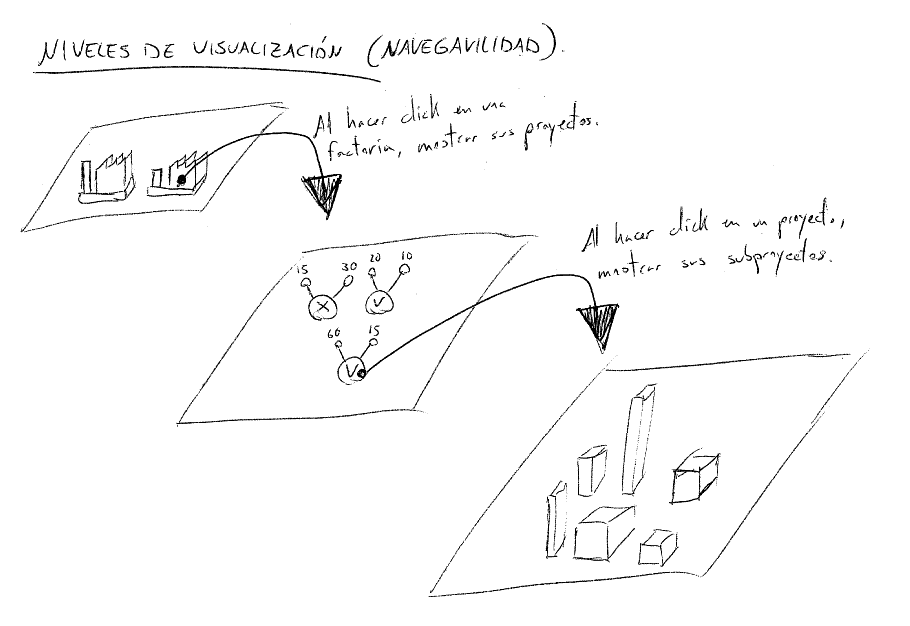 NIVELES DE VISUALIZACIÓN (NAVEGAVILIDAD).
Al hacer click en una
factoria, mostrar sus proyectos.
Al hacer click en un proyecto,
mostrar sus subproyectos.
15 30 20 10
X V
60 15
V